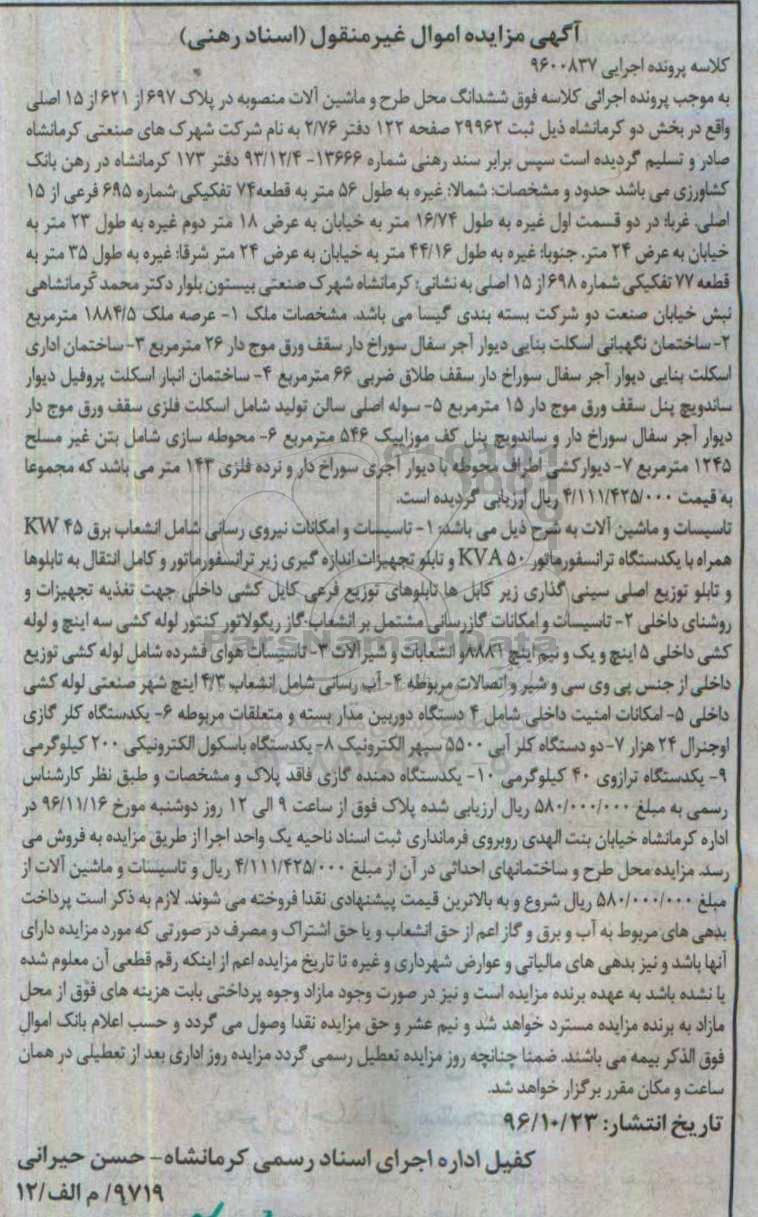 آگهی مزایده اموال غیرمنقول (اسناد رهنی)
کلاسه پرونده اجرایی ۹۶۰۰۸۳۷
به موجب پرونده اجرائی کلاسه فوق ششدانگ محل طرح و ماشین آلات منصوبه در پلاک ۶۹۷ از ۶۲۱ از ۱۵ اصلی
واقع در بخش دو کرمانشاه ذیل ثبت ۲۹۹۶۲ صفحه ۱۲۲ دفتر ۲/۷۶ به نام شرکت شهرک های صنعتی کرمانشاه
صادر و تسلیم گردیده است سپس برابر سند رهنی شماره ۱۳۶۶۶- ۹۳/۱۲/۴ دفتر ۱۷۳ کرمانشاه در رهن بانک
کشاورزی می باشد حدود و مشخصات: شمالا: غیره به طول ۵۶ متر به قطعه ۷۴ تفکیکی شماره ۶۹۵ فرعی از ۱۵
اصلی. غربا: در دو قسمت اول غیره به طول ۱۶/۷۴ متر به خیابان به عرض ۱۸ متر دوم غیره به طول ۲۳ متر به
خیابان به عرض ۲۴ متر. جنوبا: غیره به طول ۴۴/۱۶ متر به خیابان به عرض ۲۴ متر شرقا: غیره به طول ۳۵ متر به
قطعه ۷۷ تفکیکی شماره ۶۹۸ از ۱۵ اصلی به نشانی: کرمانشاه شهرک صنعتی بیستون بلوار دکتر محمد کرمانشاهی
نبش خیابان صنعت دو شرکت بسته بندی گیسا می باشد. مشخصات ملک ۱- عرصه ملک ۱۸۸۴/۵ مترمربع
۲- ساختمان نگهبانی اسکلت بنایی دیوار آجر سفال سوراخ دار سقف ورق موج دار ۲۶ مترمربع ۳- ساختمان اداری
اسکلت بنایی دیوار آجر سفال سوراخ دار سقف طلاق ضربی ۶۶ مترمربع ۴- ساختمان انبار اسکلت پروفیل دیوار
ساندویچ پنل سقف ورق موج دار ۱۵ مترمربع ۵- سوله اصلی سالن تولید شامل اسکلت فلزی سقف ورق موج دار
دیوار آجر سفال سوراخ دار و ساندویچ پنل کف موزاییک ۵۴۶ مترمربع ۶- محوطه سازی شامل بتن غیر مسلح
۱۲۴۵ مترمربع ۷- دیوارکشی اطراف محوطه با دیوار آجری سوراخ دار و نرده فلزی ۱۴۳ متر می باشد که مجموعا
به قیمت ۴/۱۱۱/۴۲۵/۰۰۰ ریال ارزیابی گردیده است.
تاسیسات و ماشین آلات به شرح ذیل می باشد: ۱- تاسیسات و امکانات نیروی رسانی شامل انشعاب برق ۴۵ KW
همراه با یکدستگاه ترانسفورماتور ۵۰ KVA و تابلو تجهیزات اندازه گیری زیر ترانسفورماتور و کامل انتقال به تابلوها
و تابلو توزیع اصلی سینی گذاری زیر کابل ها تابلوهای توزیع فرعی کابل کشی داخلی جهت تغذیه تجهیزات و
روشنای داخلی ۲- تاسیسات و امکانات گازرسانی مشتمل بر انشعاب گاز ریگولاتور کنتور لوله کشی سه اینچ و لوله
کشی داخلی ۵ اینچ و یک و نیم اینچ و انشعابات و شیرآلات ۳- تاسیسات هوای فشرده شامل لوله کشی توزیع
داخلی از جنس پی وی سی و شیر و اتصالات مربوطه ۴- آب رسانی شامل انشعاب ۴/۳ اینچ شهر صنعتی لوله کشی
داخلی ۵- امکانات امنیت داخلی شامل ۴ دستگاه دوربین مدار بسته و متعلقات مربوطه ۶- یکدستگاه کلر گازی
اوجنرال ۲۴ هزار ۷- دو دستگاه کلر آبی ۵۵۰۰ سپهر الکترونیک ۸- یکدستگاه باسکول الکترونیکی ۲۰۰ کیلوگرمی
۹- یکدستگاه ترازوی ۴۰ کیلوگرمی ۱۰- یکدستگاه دمنده گازی فاقد پلاک و مشخصات و طبق نظر کارشناس
رسمی به مبلغ ۵۸۰/۰۰۰/۰۰۰ ریال ارزیابی شده پلاک فوق از ساعت ۹ الی ۱۲ روز دوشنبه مورخ ۹۶/۱۱/۱۶ در
اداره کرمانشاه خیابان بنت الهدی روبروی فرمانداری ثبت اسناد ناحیه یک واحد اجرا از طریق مزایده به فروش می
رسد. مزایده محل طرح و ساختمانهای احداثی در آن از مبلغ ۴/۱۱۱/۴۲۵/۰۰۰ ریال و تاسیسات و ماشین آلات از
مبلغ ۵۸۰/۰۰۰/۰۰۰ ریال شروع و به بالاترین قیمت پیشنهادی نقدا فروخته می شوند. لازم به ذکر است پرداخت
بدهی های مربوط به آب و برق و گاز اعم از حق انشعاب و یا حق اشتراک و مصرف در صورتی که مورد مزایده دارای
آنها باشد و نیز بدهی های مالیاتی و عوارض شهرداری و غیره تا تاریخ مزایده اعم از اینکه رقم قطعی آن معلوم شده
یا نشده باشد به عهده برنده مزایده است و نیز در صورت وجود مازاد وجوه پرداختی بابت هزینه های فوق از محل
مازاد به برنده مزایده مسترد خواهد شد و نیم عشر و حق مزایده نقدا وصول می گردد و حسب اعلام بانک اموال
فوق الذکر بیمه می باشند. ضمنا چنانچه روز مزایده تعطیل رسمی گردد مزایده روز اداری بعد از تعطیلی در همان
ساعت و مکان مقرر برگزار خواهد شد.
تاریخ انتشار: ۹۶/۱۰/۲۳
کفیل اداره اجرای اسناد رسمی کرمانشاه- حسن حیرانی
۹۷۱۹/ م الف/۱۲
ParsNamadData